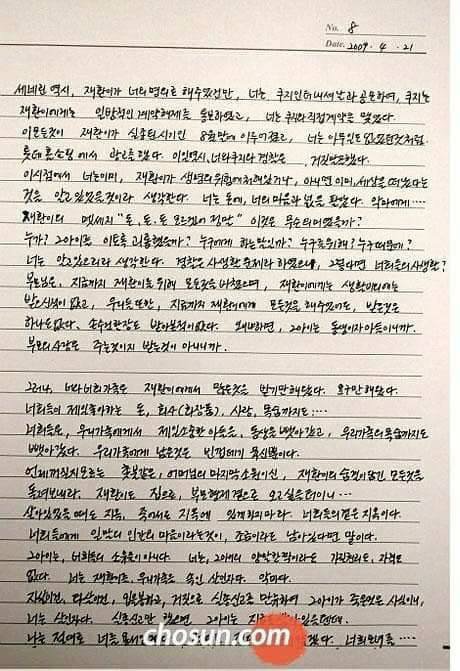 No. 8
Date. 2009 . 4 . 21
세네린 역시, 재환이가 너의 명의로 해주었건만, 너는 쿠지인터내셔날과 공모하여, 쿠지는
재환이에게는 일방적인 계약해제를 통보하였고, 너는 쿠지와 직접계약을 맺었다.
이 모든것이 재환이가 실종된 시기인 8월만에 이루어졌고, 너는 아무일도 없었던것처럼.
롯데 홈쇼핑에서 광고를 했다. 이 일 역시, 너와 쿠지와 경찰은 거짓말을 했다.
이 시점에서 너는 이미, 재환이가 생명의 위험에 처해있거나, 아니면 이미, 세상을 떠났다는
것을 알고 있었을것이라 생각한다. 너는 돈에, 너의 마음과 몸을 팔았다. 악마에게....
재환이의 메세지 "돈, 돈, 돈 모르겠어 정말" 이것은 무슨의미였을까?
누가? 그 아이를 이토록 괴롭혔을까? 누구에게 하는말인가? 누구를위해? 누구때문에?
너는 알고있으리라 생각한다. 경찰은 사생활 문제라 하였으니, 그렇다면 너희들의 사생활?
부모님은, 지금까지 재환이를 위해 모든것을 바쳤으며, 재환이에게는 생활비외에는
받으신적이 없고, 우리들 또한, 지금까지 재환이에게 모든것을 해주었어도, 받은것은
하나도 없다. 손수건한장도 받아본적이 없다. 왜냐하면, 그아이는 동생이자 아들이니까.
부모의 사랑은 주는것이지 받는것이 아니니까.
그러나, 너와 너희 가족은 재환이에게 많은것을 받기만 해왔다. 요구만 해왔다.
너희들이 제일 좋아하는 돈, 회사(화장품), 사랑, 목숨까지도....
너희들은, 우리가족에게서 제일소중한 아들을, 동생을 뺏아갔고, 우리가족의 목숨까지도
뺏아갔다. 우리가족에게 남은것은 빈껍데기 육신뿐이다.
언제꺼질지 모르는 촛불같은, 어머님의 마지막 소원이신, 재환이의 숨결이 담긴 모든것을
돌려보내라. 재환이도 집으로, 부모형제 곁으로 오고싶을터이니...
살아있을때도 지옥, 죽어서도 지옥에 있게하지마라. 너희들의 곁은 지옥이다.
너희들에게 일말의 인간의 마음이라는것이, 조금이라도 남아있다면 말이다.
그아이는, 너희들의 소유물이 아니다. 너는, 그아이의 양말한짝이라도 가질권리도, 자격도
없다. 너는 재환이를, 우리가족을 속인 살인자다. 악마다.
자살이건, 타살이건, 일을꾸미고, 거짓으로 실종신고를 한 이유와 그아이가 죽은것은 사실이니,
너는 살인자다. 실종신고만 했으면, 그아이는 지금 살아있을텐데.
나는 절대로 너를
chosun.com